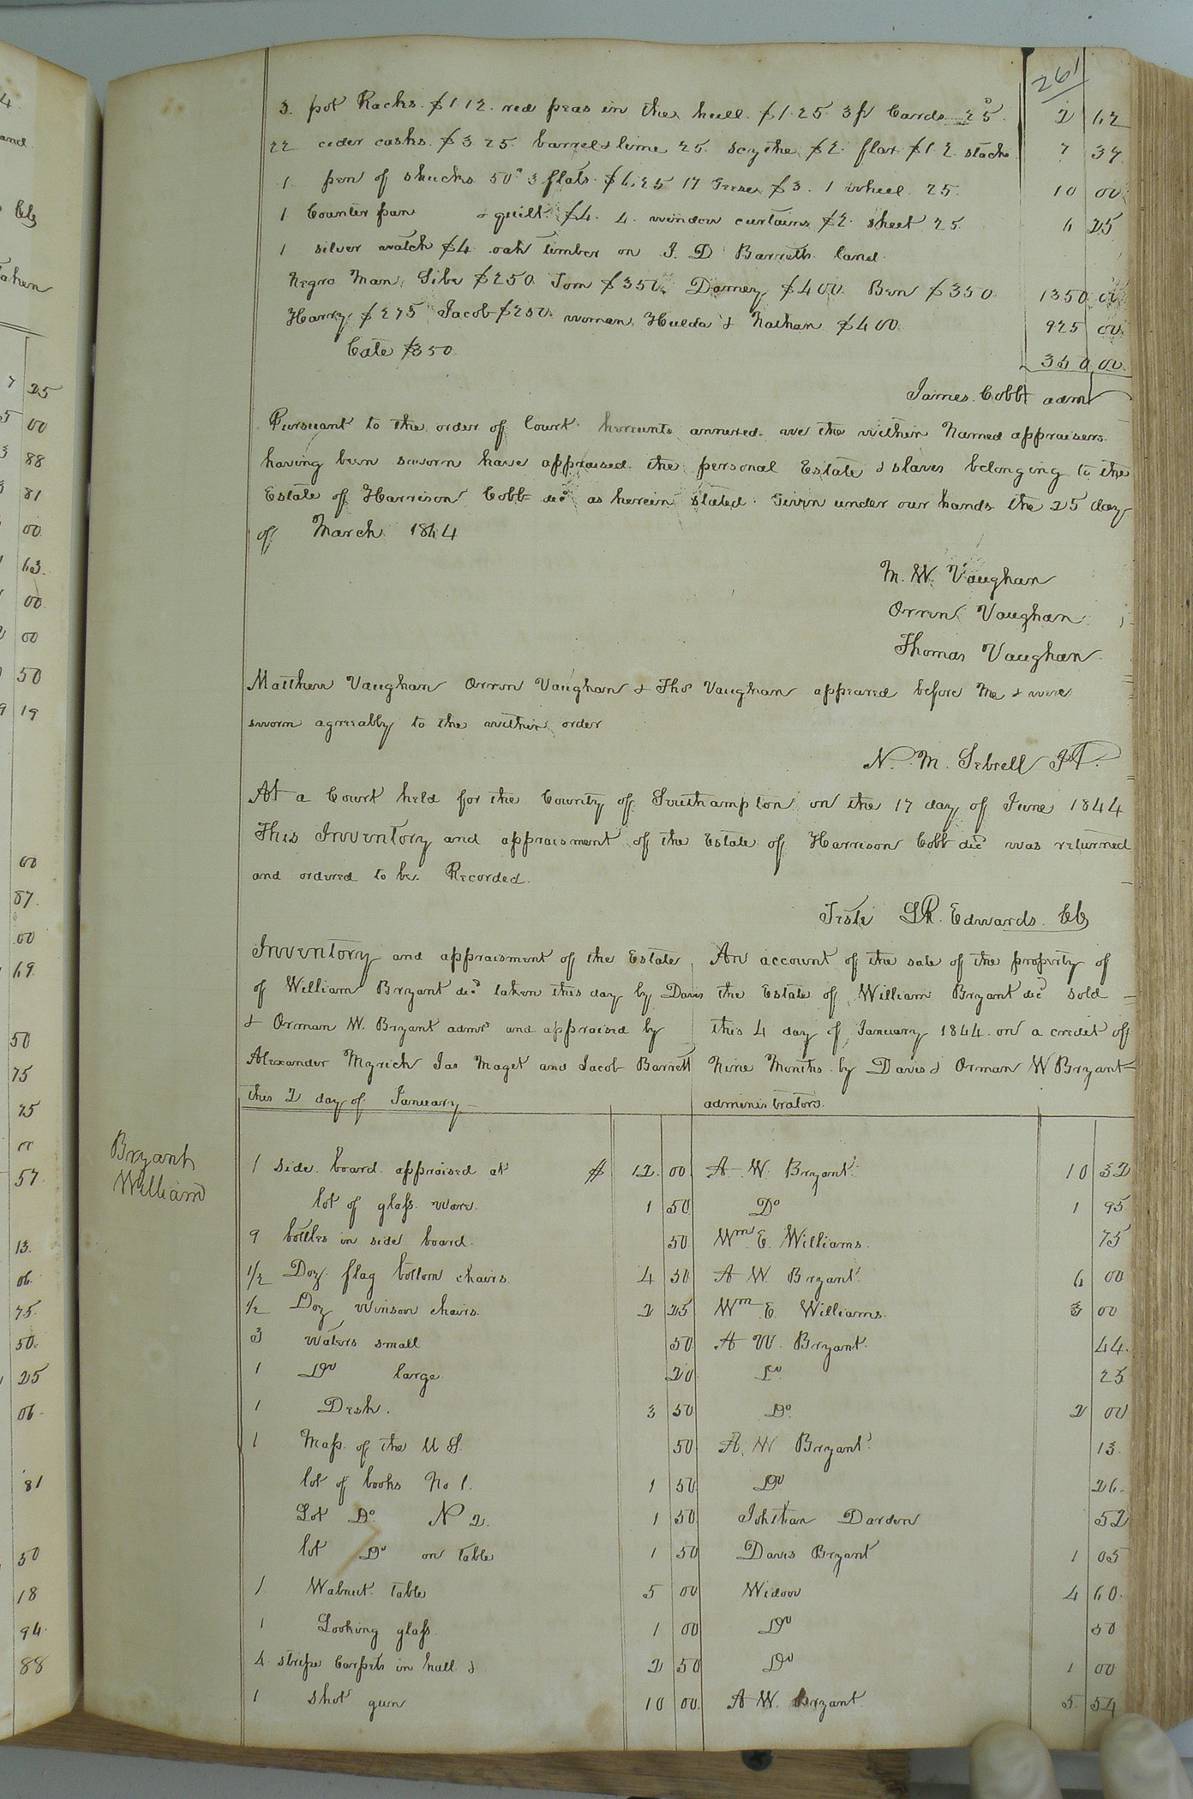 261
3 pot Racks $1 12 red peas in the hull $1 25 3 pr Cards 25 2 62
22 cider casks $3 25 barrel & lime 25 scythe $2 flax $1 2 stacks 7 37
1 pen of shucks 50 3 flats $6.25 17 Geese $3 1 wheel 25 10 00
1 Counter pan & quilt $4 4 window curtains $2 sheet 25 6 25
1 silver watch $4 oak timber on J. D Barretts land
Negro Man, Sibe $250 Tom $350, Damey $400 Ben $350 1350 00
Harry $275 Jacob $250 woman Hulda & Nathan $400 925 00
Cate $350 350 00
James Cobb adm
Pursuant to the order of Court hereunto annexed we the within Named appraisers
having been sworn have appraised the personal Estate & slaves belonging to the
Estate of Harrison Cobb decd as herein stated. Given under our hands the 25 day
of March 1844
M. W. Vaughan
Orren Vaughan
Thomas Vaughan
Matthew Vaughan Orren Vaughan & Thos Vaughan appeared before Me & were
sworn agreeably to the within order
N. M. Sebrell JP.
At a Court held for the County of Southampton on the 17 day of June 1844
This Inventory and appraisment of the Estate of Harrison Cobb decd was returned
and ordered to be Recorded.
Teste L R. Edwards. Cl
Inventory and appraisment of the Estate
of William Bryant decd taken this day by Davis
& Orman W. Bryant admrs and appraised by
Alexander Myrick Jas Maget and Jacob Barrett
this 2 day of January
An account of the sale of the property of
the Estate of William Bryant decd sold
this 4 day of January 1844 on a credit of
Nine Months by Davis & Orman W Bryant
administrators.
Bryant
William
1 side board appraised at $ 12 00 A W. Bryant 10 32
lot of glass ware 1 50 Do 1 95
9 bottles in side board 50 Wm E. Williams 75
1/2 Doz flag bottom chairs 4 50 A W Bryant 6 00
1/2 Doz Winsor chairs 2 25 Wm E Williams 3 00
3 waters small 50 A W. Bryant 44
1 Do large 20 Do 25
1 Desk 3 50 Do 2 00
1 Map of the U S. 50 A. W Bryant 13
lot of books No 1. 1 50 Do 26
Lot Do N 2. 1 50 Darden 52
lot Do on table 1 50 Davis Bryant 1 05
1 Walnut table 5 00 Widow 4 60
1 Looking glass 1 00 Do 50
4 stripe Carpets in hall & 2 50 Do 1 00
1 shot gun 10 00 A W. Bryant 5 54
4
and
Cl
taken
7 25
5 00
3 88
81
00
63
00
00
50
9 19
60
87
00
69
50
75
25
57
13
06
75
50
25
06
81
50
18
94
88